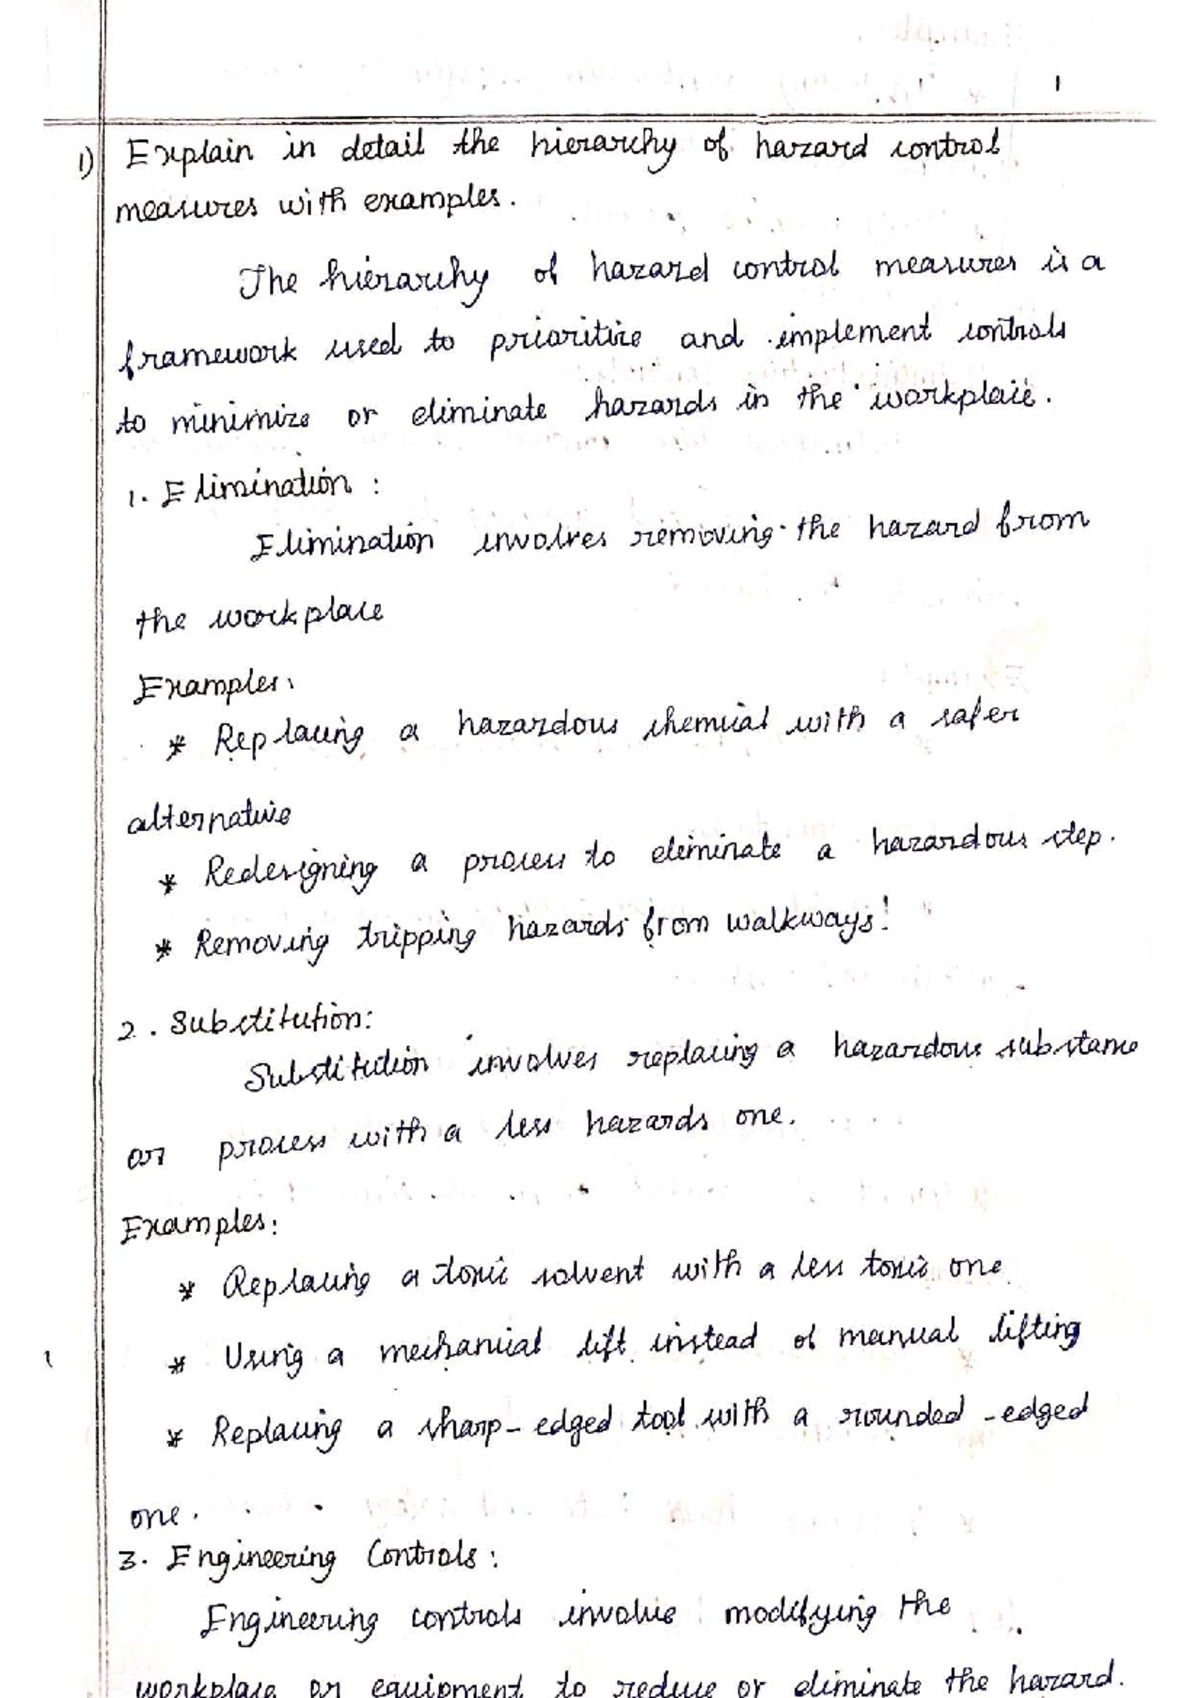 1
1) Explain in detail the hierarchy of hazard control
measures with examples.
The hierarchy of hazard control measures is a
framework used to prioritize and implement controls
to minimize or eliminate hazards in the workplace.
1. Elimination :
Elimination involves removing the hazard from
the workplace
Examples:
* Replacing a hazardous chemical with a safer
alternative
* Redesigning a process to eliminate a hazardous step.
* Removing tripping hazards from walkways!
2. Substitution:
Substitution involves replacing a hazardous substance
or process with a less hazards one.
Examples:
* Replacing a toxic solvent with a less toxic one
* Using a mechanical lift instead of manual lifting
* Replacing a sharp-edged tool with a rounded-edged
one.
3. Engineering Controls:
Engineering controls involve modifying the
workplace or equipment to reduce or eliminate the hazard.